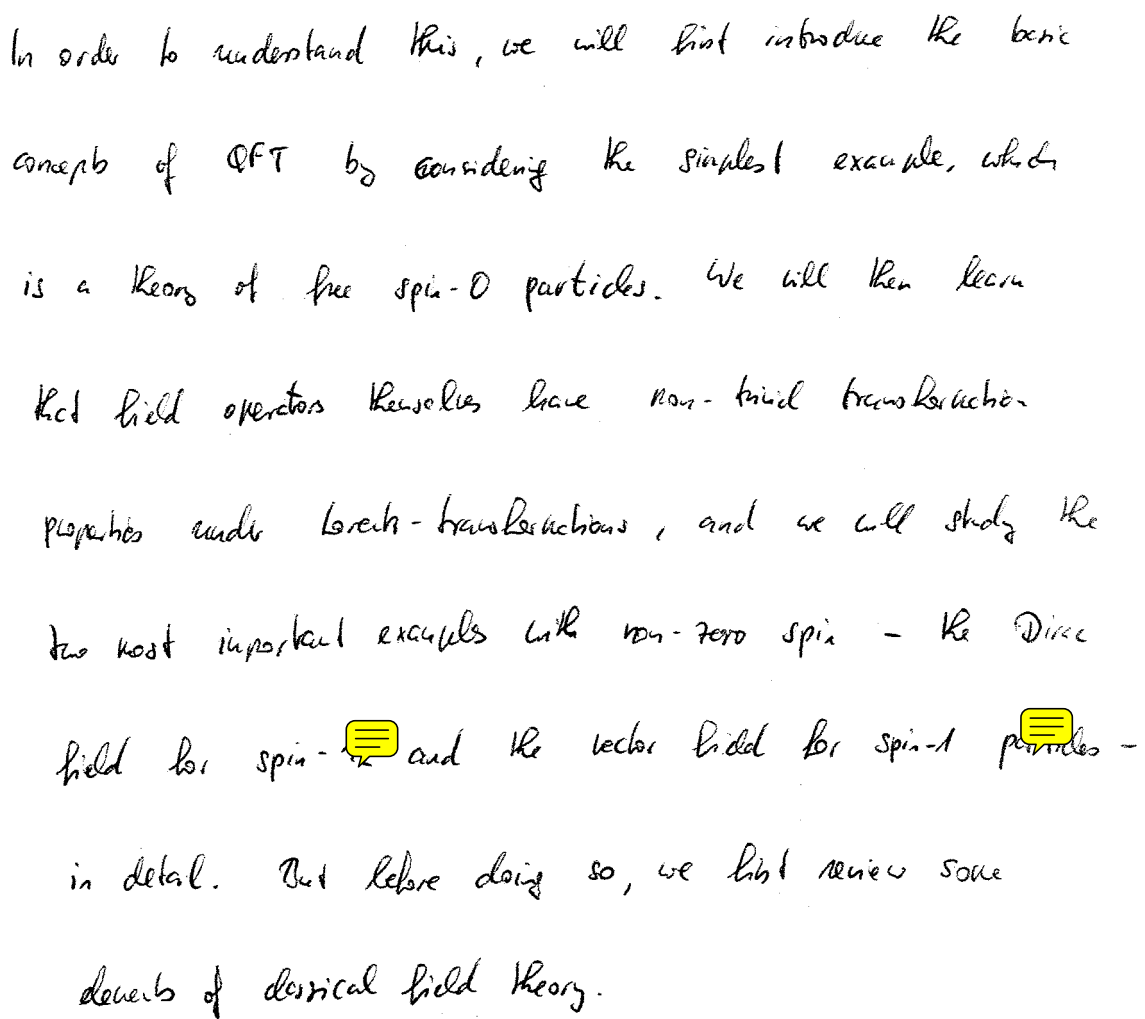 In order to understand this, we will first introduce the basic
concepts of QFT by considering the simplest example, which
is a theory of free spin-0 particles. We will then learn
that field operators themselves have non-trivial transformation
properties under Lorentz-transformations, and we will study the
two most important examples with non-zero spin – the Dirac
field for spin- and the vector field for spin-1 particles –
in detail. But before doing so, we first review some
elements of classical field theory.